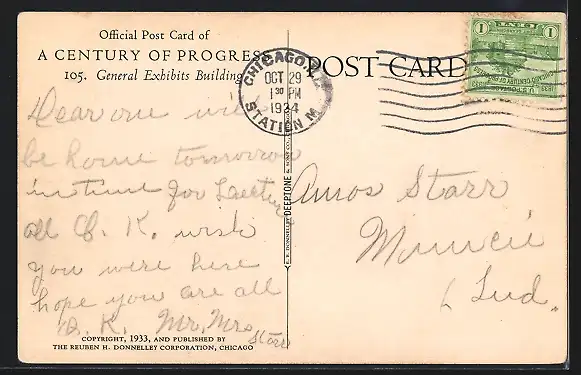 Official Post Card of
A CENTURY OF PROGRESS
105. General Exhibits Building
POST CARD
CHICAGO, ILL.
OCT 29
1 30 PM
1934
STATION M
1 1
Dear one will
be home tomorrow
in time for
all O. K. wish
you were here
hope you are all
O. K. Mr. Mrs
Starr
Amos Starr
Muncie
Ind.
R. R. DONNELLEY & SONS CO., CHICAGO
DEEPTONE
COPYRIGHT, 1933, AND PUBLISHED BY
THE REUBEN H. DONNELLEY CORPORATION, CHICAGO